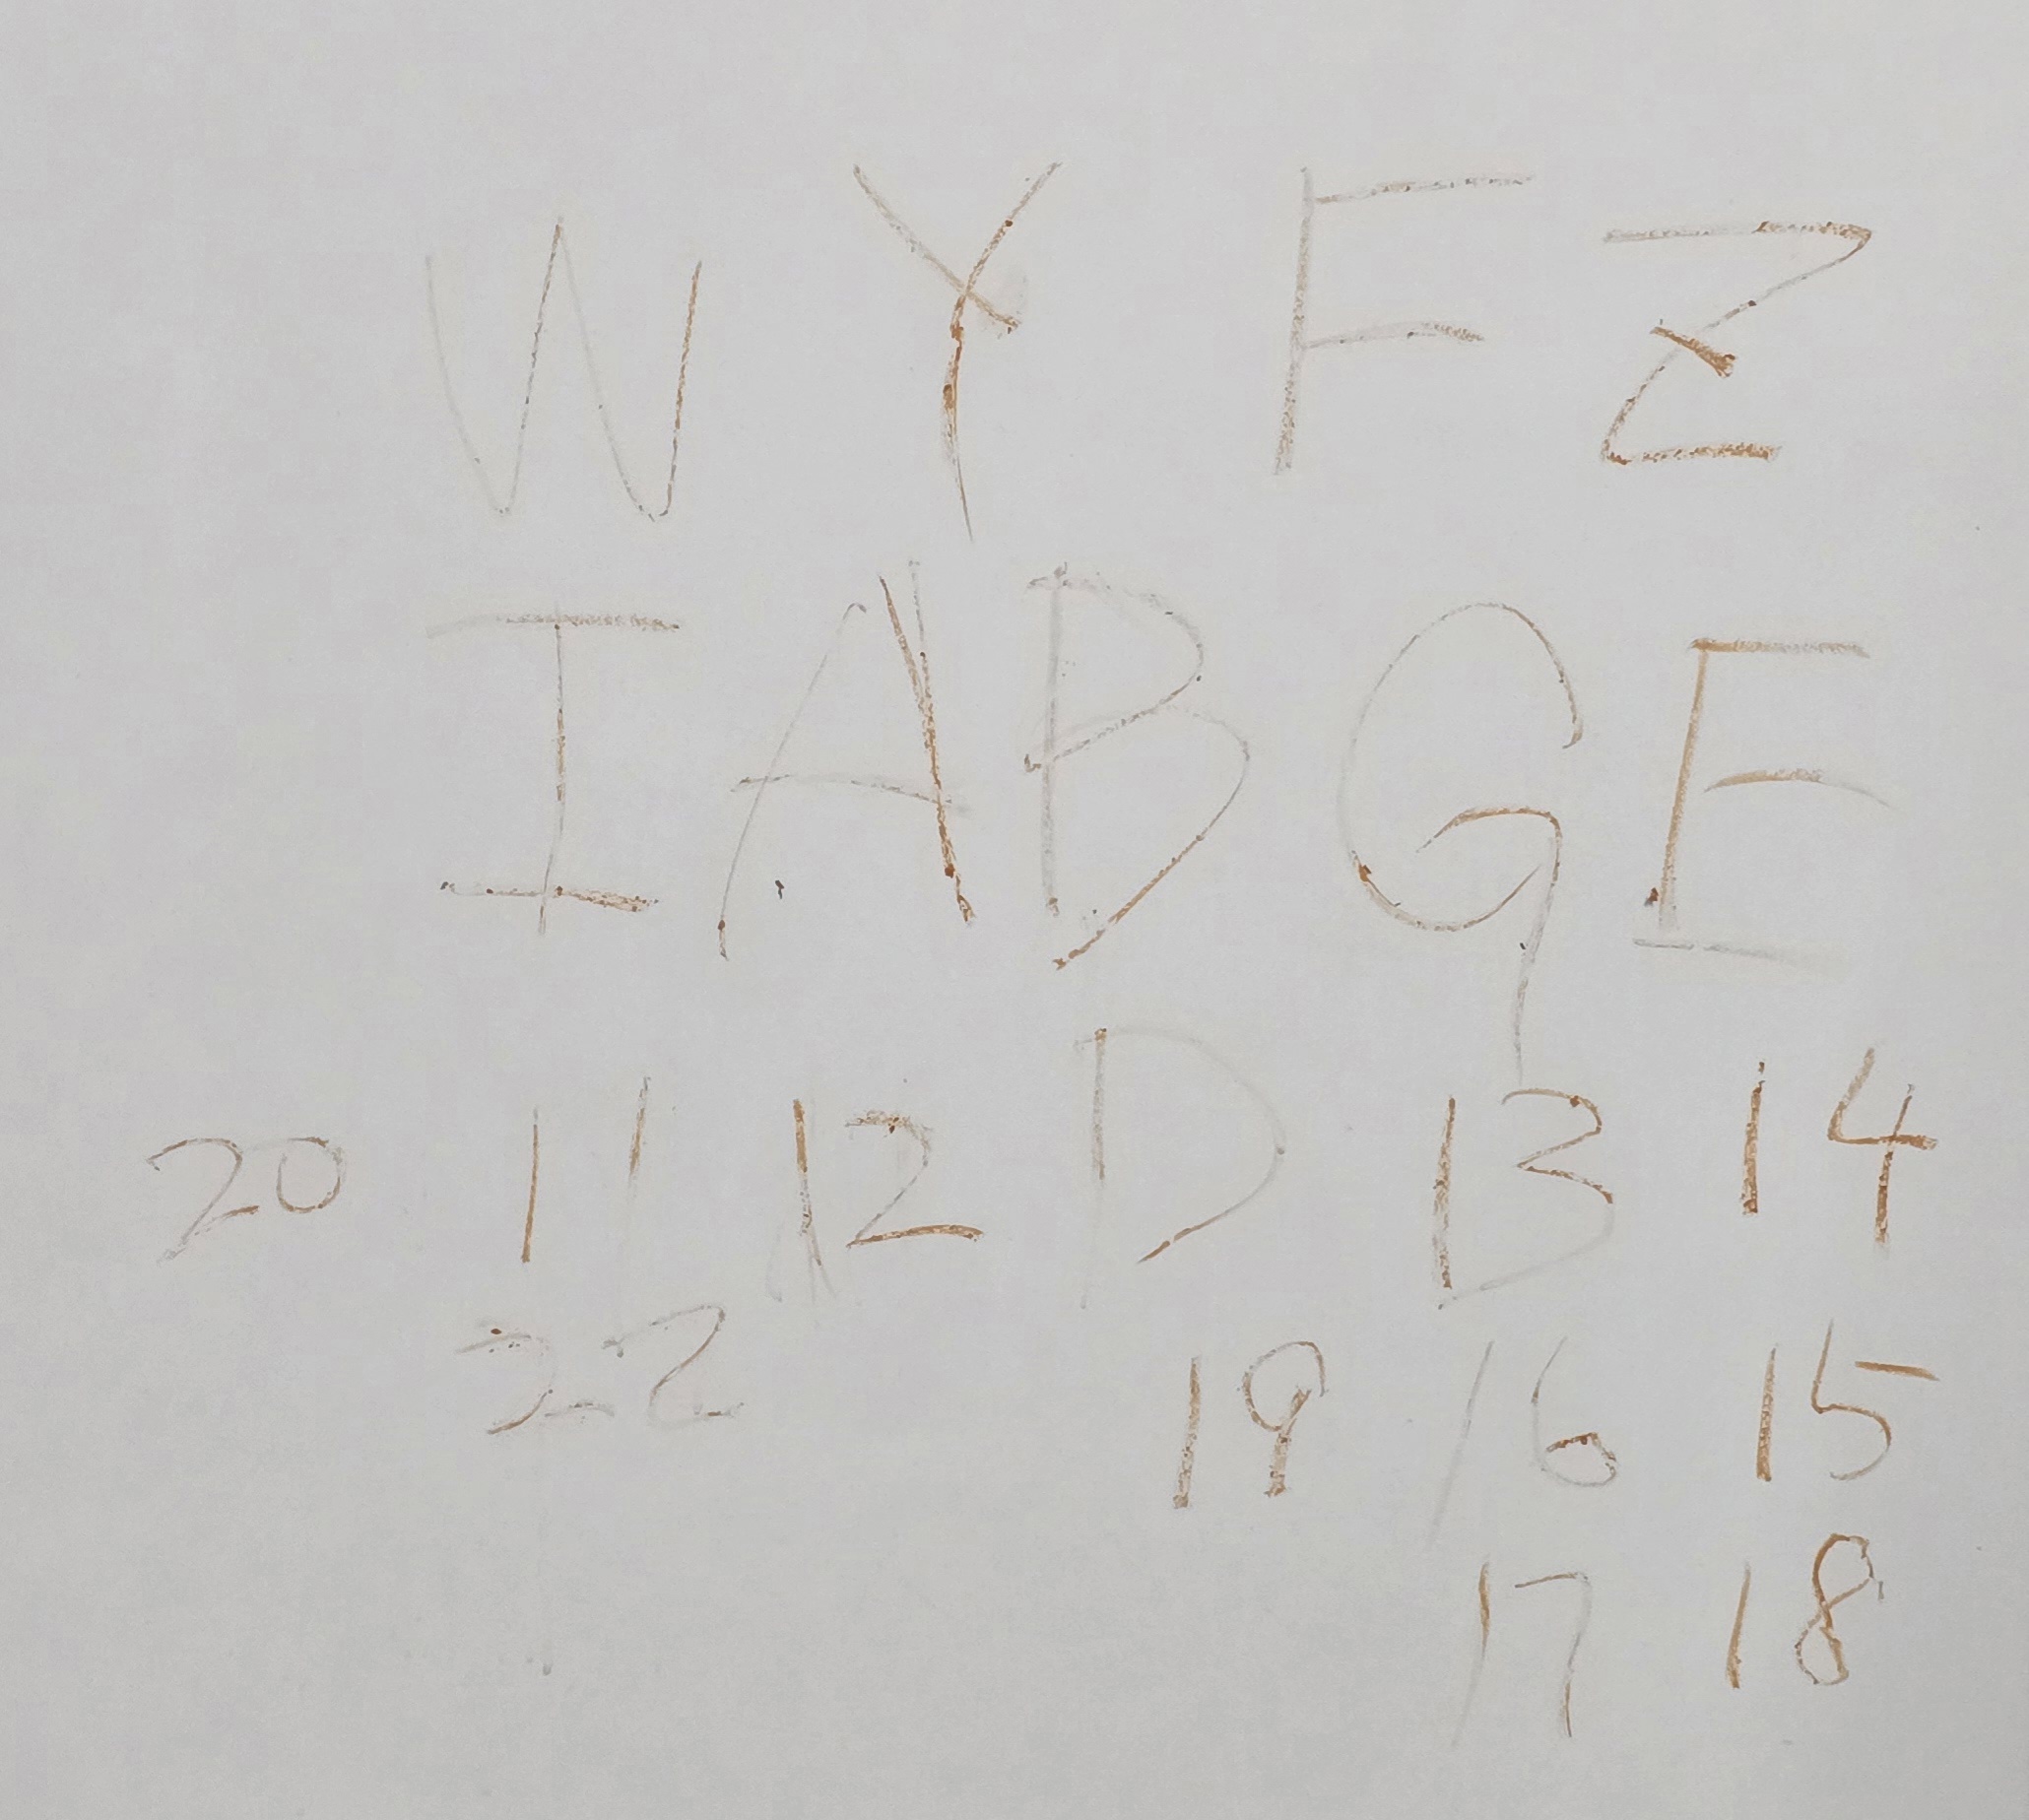 W Y F Z
I A B G E
20 11 12 D 13 14
22 19 16 15
17 18